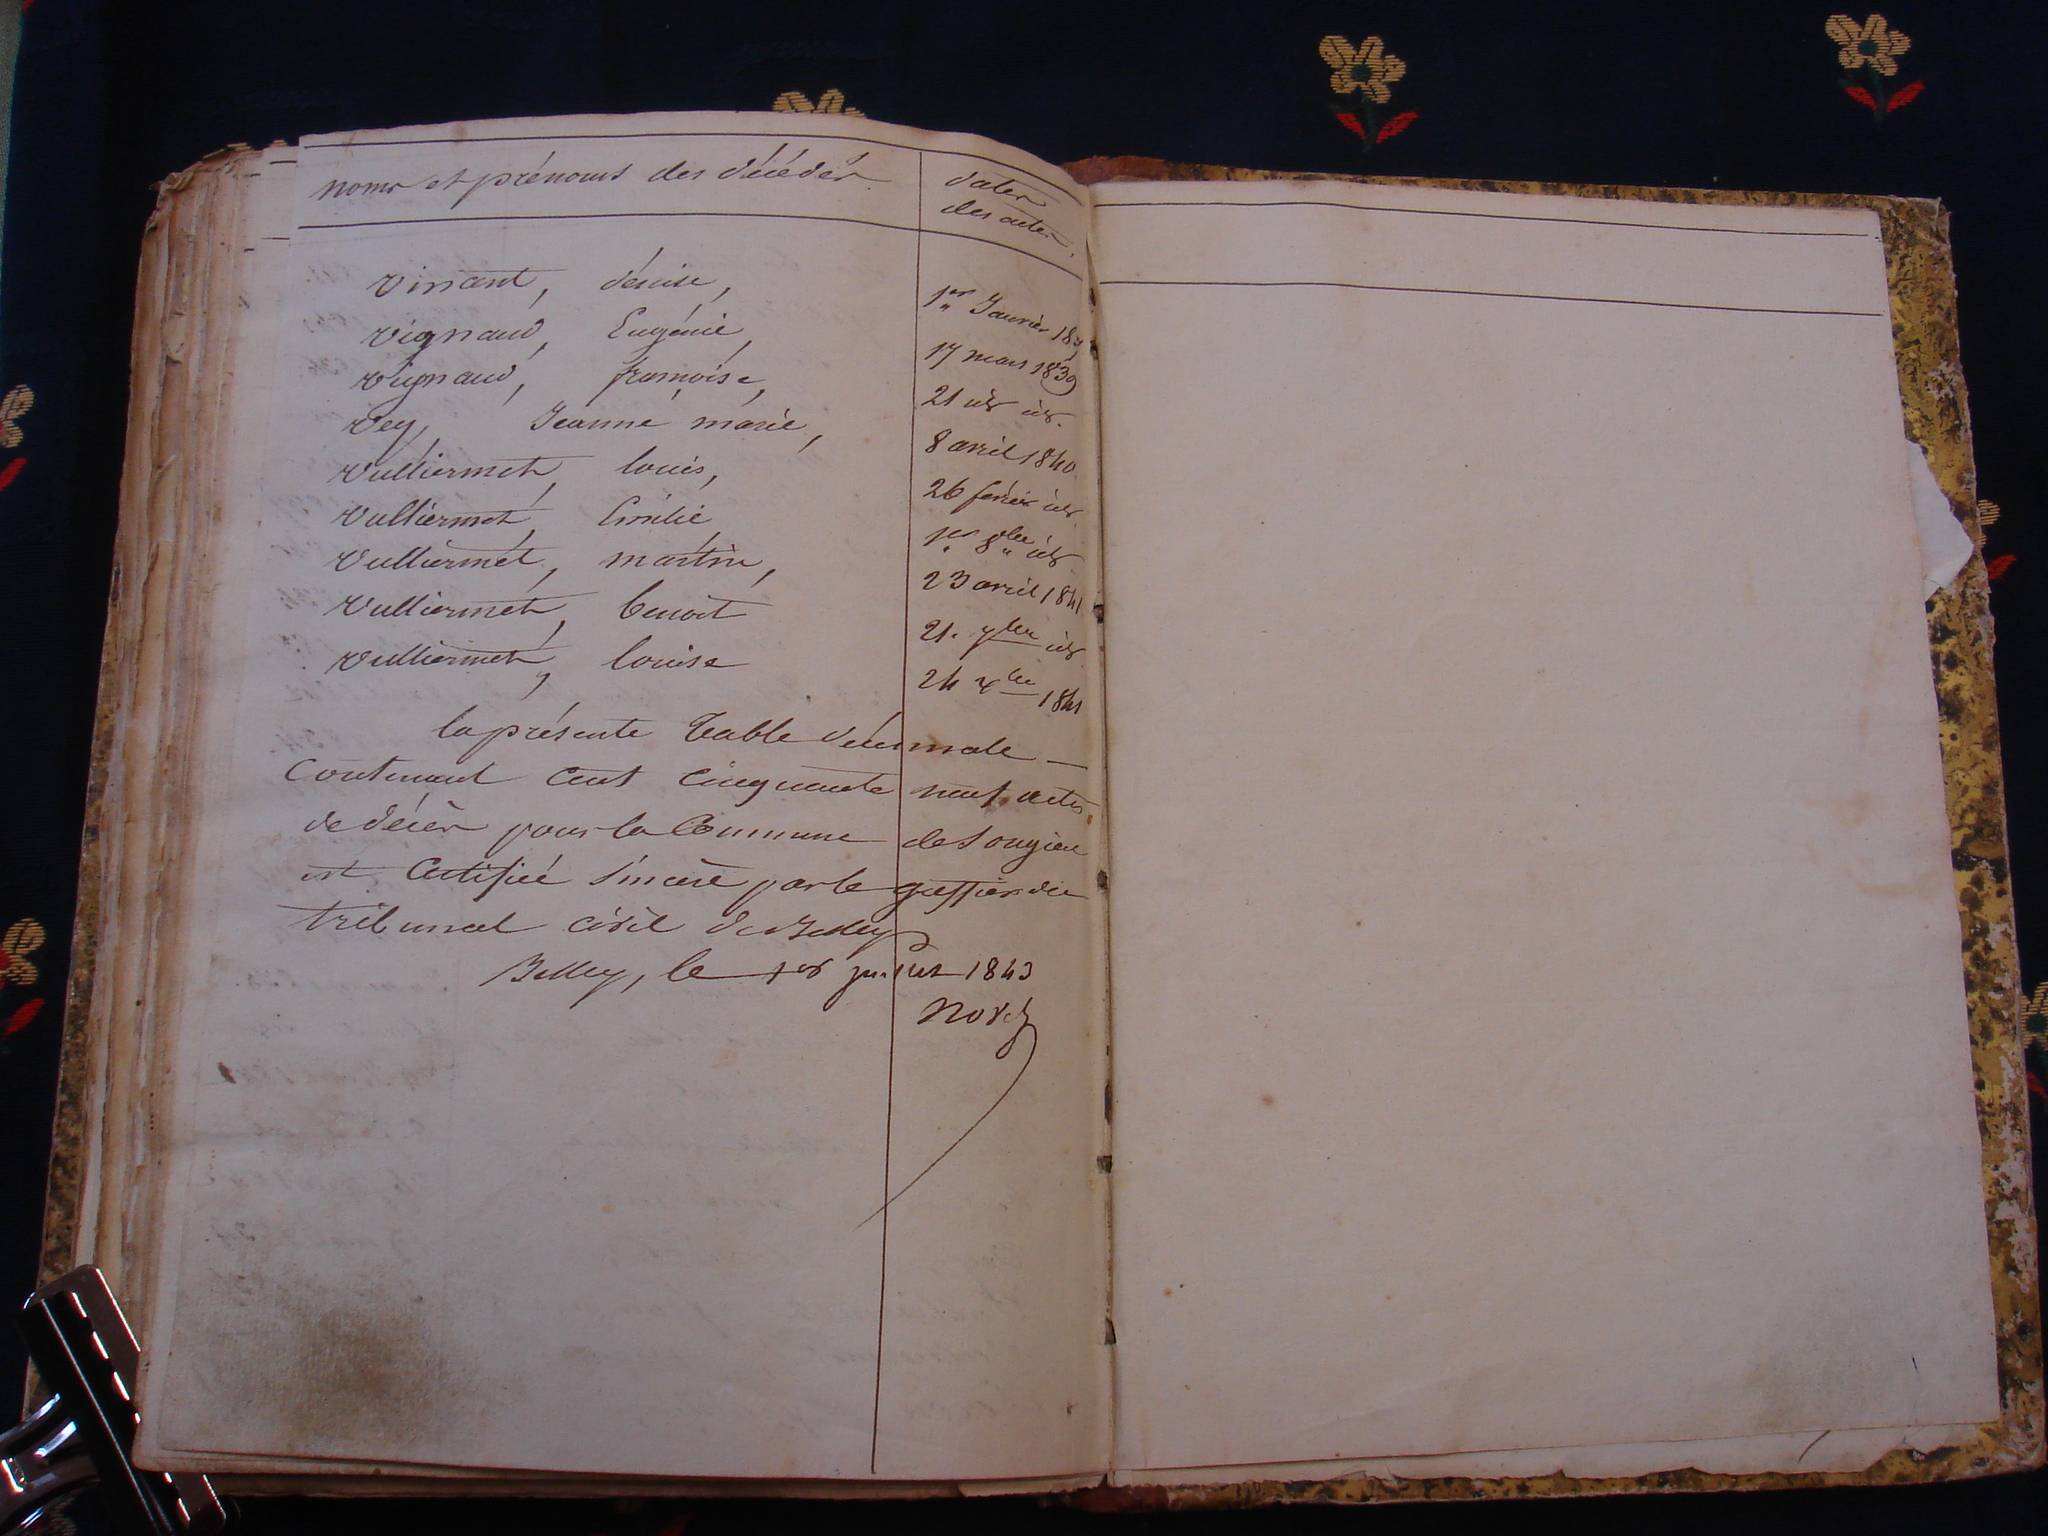 noms et prénoms des décédés
dates
des actes.
Vincent, dénise, 1er Janvier
Vignaud, Eugénie, 17 mars 1839
Vignaud, françoise, 21 id id.
Vey, Jeanne marie, 8 avril 1840
Vulliermet, louis, 26 février id
Vulliermet, Emilie 1er 8bre id
Vulliermet, martin, 23 avril 1841
Vulliermet, benoit 21. 7bre id
Vulliermet, louise 24 xbre 1841
la présente Table décennale —
Contenant Cent Cinquante neuf actes
de décès pour la Commune de Songieu
est Certifiée Sincère par le greffier du
tribunal civil de Belley
Belley, le 1er juillet 1843